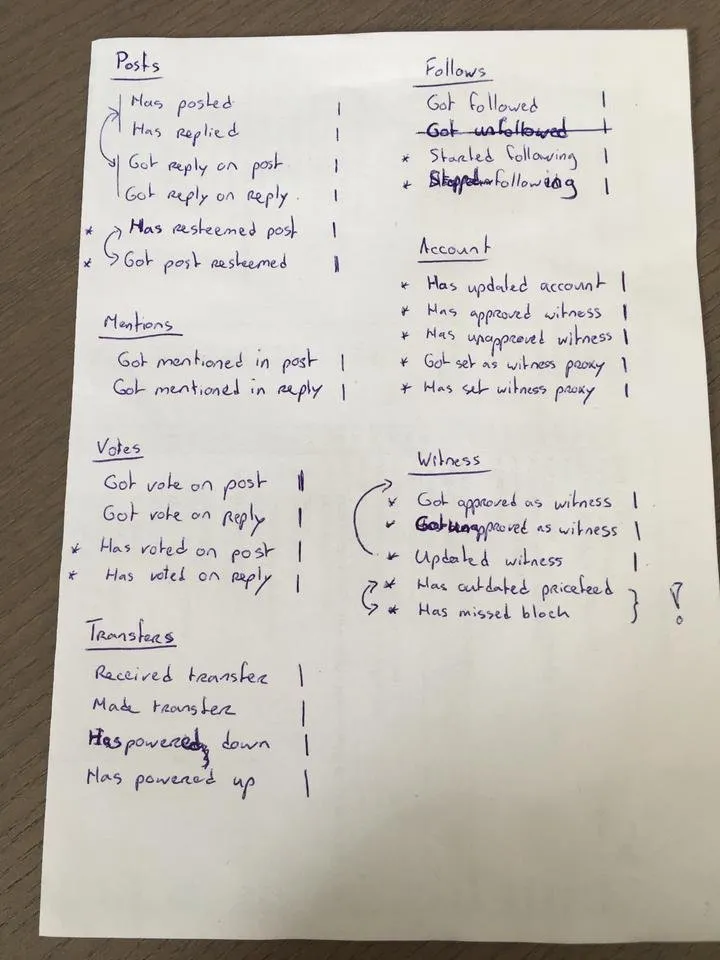 Posts
Has posted |
Has replied |
Got reply on post |
Got reply on reply |
* Has resteemed post |
* Got post resteemed |
Mentions
Got mentioned in post |
Got mentioned in reply |
Votes
Got vote on post |
Got vote on reply |
* Has voted on post |
* Has voted on reply |
Transfers
Received transfer |
Made transfer |
Has powered down |
Has powered up |
Follows
Got followed |
Got unfollowed |
* Started following |
* Stopped following |
Account
* Has updated account |
* Has approved witness |
* Has unapproved witness |
* Got set as witness proxy |
* Has set witness proxy |
Witness
* Got approved as witness |
* Got unapproved as witness |
* Updated witness |
* Has outdated pricefeed
* Has missed block } ?